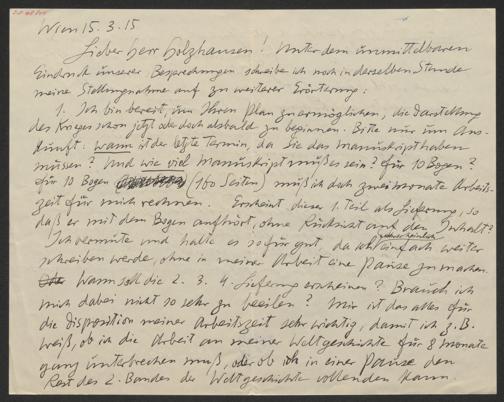 Wien 15. 3. 15
Lieber Herr Holzhausen! Unter dem unmittelbaren
Eindruck unserer Besprechungen schreibe ich noch in derselben Stunde
meine Stellungnahme auf zu weiterer Erörterung:
1. Ich bin bereit, um Ihren Plan zu ermöglichen, die Darstellung
des Krieges schon jetzt oder doch alsbald zu beginnen. Bitte nur um Aus-
kunft: wann ist der letzte Termin, da Sie das Manuskript haben
müssen? Und wie viel Manuskript muß es sein? Für 10 Bogen?
Für 10 Bogen (160 Seiten) muß ich doch zwei Monate Arbeits-
zeit für mich rechnen. Erscheint dieser 1. Teil als Lieferung, so
daß er mit dem Bogen aufhört, ohne Rücksicht auf den Inhalt?
Ich vermute und halte es so für gut, da ich einfach weiter
schreiben werde, ohne in meiner Arbeit eine Pause zu machen.
Wann soll die 2. 3. 4. Lieferung erscheinen? Brauch ich
mich dabei nicht so sehr zu beeilen? Mir ist das alles für
die Disposition meiner Arbeitszeit sehr wichtig, damit ich z. B.
weiß, ob ich die Arbeit an meiner Weltgeschichte für 8 Monate
ganz unterbrechen muß, oder ob ich in einer Pause den
Rest des 2. Bandes der Weltgeschichte vollenden kann.